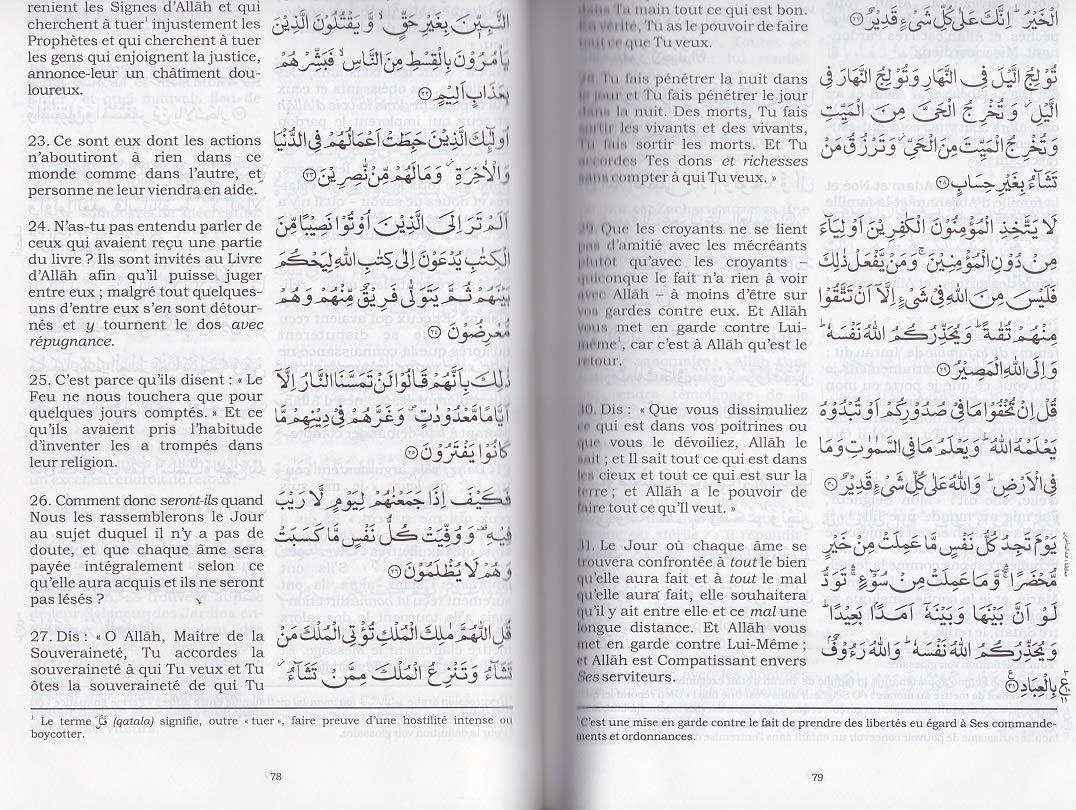 renient les Signes d'Allāh et qui
cherchent à tuer¹ injustement les
Prophètes et qui cherchent à tuer
les gens qui enjoignent la justice,
annonce-leur un châtiment dou-
loureux.
23. Ce sont eux dont les actions
n'aboutiront à rien dans ce
monde comme dans l'autre, et
personne ne leur viendra en aide.
24. N'as-tu pas entendu parler de
ceux qui avaient reçu une partie
du livre ? Ils sont invités au Livre
d'Allāh afin qu'il puisse juger
entre eux ; malgré tout quelques-
uns d'entre eux s'en sont détour-
nés et y tournent le dos avec
répugnance.
25. C'est parce qu'ils disent : « Le
Feu ne nous touchera que pour
quelques jours comptés. » Et ce
qu'ils avaient pris l'habitude
d'inventer les a trompés dans
leur religion.
26. Comment donc seront-ils quand
Nous les rassemblerons le Jour
au sujet duquel il n'y a pas de
doute, et que chaque âme sera
payée intégralement selon ce
qu'elle aura acquis et ils ne seront
pas lésés ?
27. Dis : « O Allāh, Maître de la
Souveraineté, Tu accordes la
souveraineté à qui Tu veux et Tu
ôtes la souveraineté de qui Tu
النَّبِيّٖنَ بِغَيْرِ حَقٍّ ۙ وَّ يَقْتُلُوْنَ الَّذِيْنَ
يَاْمُرُوْنَ بِالْقِسْطِ مِنَ النَّاسِ ۙ فَبَشِّرْهُمْ
بِعَذَابٍ اَلِيْمٍ ۝۲۲
اُولٰٓئِكَ الَّذِيْنَ حَبِطَتْ اَعْمَالُهُمْ فِي الدُّنْيَا
وَالْاٰخِرَةِ ۫ وَمَا لَهُمْ مِّنْ نّٰصِرِيْنَ ۝۲۳
اَلَمْ تَرَ اِلَى الَّذِيْنَ اُوْتُوْا نَصِيْبًا مِّنَ
الْكِتٰبِ يُدْعَوْنَ اِلٰى كِتٰبِ اللّٰهِ لِيَحْكُمَ
بَيْنَهُمْ ثُمَّ يَتَوَلّٰى فَرِيْقٌ مِّنْهُمْ وَهُمْ
مُّعْرِضُوْنَ ۝۲۴
ذٰلِكَ بِاَنَّهُمْ قَالُوْا لَنْ تَمَسَّنَا النَّارُ اِلَّاۤ
اَيَّامًا مَّعْدُوْدٰتٍ ۪ وَغَرَّهُمْ فِيْ دِيْنِهِمْ مَّا
كَانُوْا يَفْتَرُوْنَ ۝۲۵
فَكَيْفَ اِذَا جَمَعْنٰهُمْ لِيَوْمٍ لَّا رَيْبَ
فِيْهِ ۫ وَوُفِّيَتْ كُلُّ نَفْسٍ مَّا كَسَبَتْ
وَهُمْ لَا يُظْلَمُوْنَ ۝۲۶
قُلِ اللّٰهُمَّ مٰلِكَ الْمُلْكِ تُؤْتِي الْمُلْكَ مَنْ
تَشَآءُ وَتَنْزِعُ الْمُلْكَ مِمَّنْ تَشَآءُ ۫
¹ Le terme قَتَلَ (qatala) signifie, outre « tuer », faire preuve d'une hostilité intense ou
boycotter.
78
dans Ta main tout ce qui est bon.
En vérité, Tu as le pouvoir de faire
tout ce que Tu veux.
28. Tu fais pénétrer la nuit dans
le jour et Tu fais pénétrer le jour
dans la nuit. Des morts, Tu fais
sortir les vivants et des vivants,
Tu fais sortir les morts. Et Tu
accordes Tes dons et richesses
sans compter à qui Tu veux. »
29. Que les croyants ne se lient
pas d'amitié avec les mécréants
plutôt qu'avec les croyants –
quiconque le fait n'a rien à voir
avec Allāh – à moins d'être sur
vos gardes contre eux. Et Allāh
vous met en garde contre Lui-
même¹, car c'est à Allāh qu'est le
retour.
30. Dis : « Que vous dissimuliez
ce qui est dans vos poitrines ou
que vous le dévoiliez, Allāh le
sait ; et Il sait tout ce qui est dans
les cieux et tout ce qui est sur la
terre ; et Allāh a le pouvoir de
faire tout ce qu'Il veut. »
31. Le Jour où chaque âme se
trouvera confrontée à tout le bien
qu'elle aura fait et à tout le mal
qu'elle aura fait, elle souhaitera
qu'il y ait entre elle et ce mal une
longue distance. Et Allāh vous
met en garde contre Lui-Même ;
et Allāh est Compatissant envers
Ses serviteurs.
الْخَيْرُ ؕ اِنَّكَ عَلٰى كُلِّ شَيْءٍ قَدِيْرٌ ۝۲۷
تُوْلِجُ الَّيْلَ فِي النَّهَارِ وَتُوْلِجُ النَّهَارَ فِي
الَّيْلِ ۫ وَتُخْرِجُ الْحَيَّ مِنَ الْمَيِّتِ
وَتُخْرِجُ الْمَيِّتَ مِنَ الْحَيِّ ۫ وَتَرْزُقُ مَنْ
تَشَآءُ بِغَيْرِ حِسَابٍ ۝۲۸
لَا يَتَّخِذِ الْمُؤْمِنُوْنَ الْكٰفِرِيْنَ اَوْلِيَآءَ
مِنْ دُوْنِ الْمُؤْمِنِيْنَ ۚ وَمَنْ يَّفْعَلْ ذٰلِكَ
فَلَيْسَ مِنَ اللّٰهِ فِيْ شَيْءٍ اِلَّاۤ اَنْ تَتَّقُوْا
مِنْهُمْ تُقٰىةً ؕ وَيُحَذِّرُكُمُ اللّٰهُ نَفْسَهٗ ؕ
وَاِلَى اللّٰهِ الْمَصِيْرُ ۝۲۹
قُلْ اِنْ تُخْفُوْا مَا فِيْ صُدُوْرِكُمْ اَوْ تُبْدُوْهُ
يَعْلَمْهُ اللّٰهُ ؕ وَيَعْلَمُ مَا فِي السَّمٰوٰتِ وَمَا
فِي الْاَرْضِ ؕ وَاللّٰهُ عَلٰى كُلِّ شَيْءٍ قَدِيْرٌ ۝۳۰
يَوْمَ تَجِدُ كُلُّ نَفْسٍ مَّا عَمِلَتْ مِنْ خَيْرٍ
مُّحْضَرًا ۖۚ وَّمَا عَمِلَتْ مِنْ سُوْٓءٍ ۚۖ تَوَدُّ
لَوْ اَنَّ بَيْنَهَا وَبَيْنَهٗۤ اَمَدًۢا بَعِيْدًا ؕ
وَيُحَذِّرُكُمُ اللّٰهُ نَفْسَهٗ ؕ وَاللّٰهُ رَءُوْفٌۢ
بِالْعِبَادِ ۝۳۱
¹ C'est une mise en garde contre le fait de prendre des libertés eu égard à Ses commande-
ments et ordonnances.
79